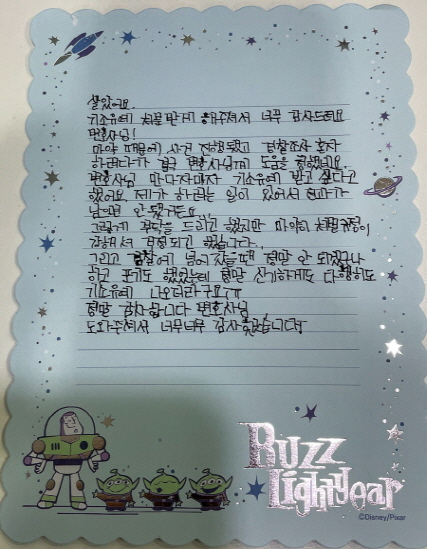 살았어요.
기소유예 처분 받게 해주셔서 너무 감사드려요
변호사님!
마약 때문에 사건 진행됐고 경찰조사 혼자
하려다가 결국 변호사님께 도움을 청했네요.
변호사님 만나자마자 기소유예 받고 싶다고
했어요. 제가 하려는 일이 있어서 전과가
남으면 안 됐거든요
그렇게 부탁을 드리고 했지만 마약이 처벌규정이
강해서 걱정되고 했습니다..
그리고 검찰에 넘어갔을 땐 정말 안 되겠구나
하고 포기도 했었는데 정말 신기하게도 다행히도
기소유예 나오더라구요ㅠㅠ
정말 감사합니다 변호사님
도와주셔서 너무너무 감사했습니다!
BUZZ
Lightyear
©Disney/Pixar